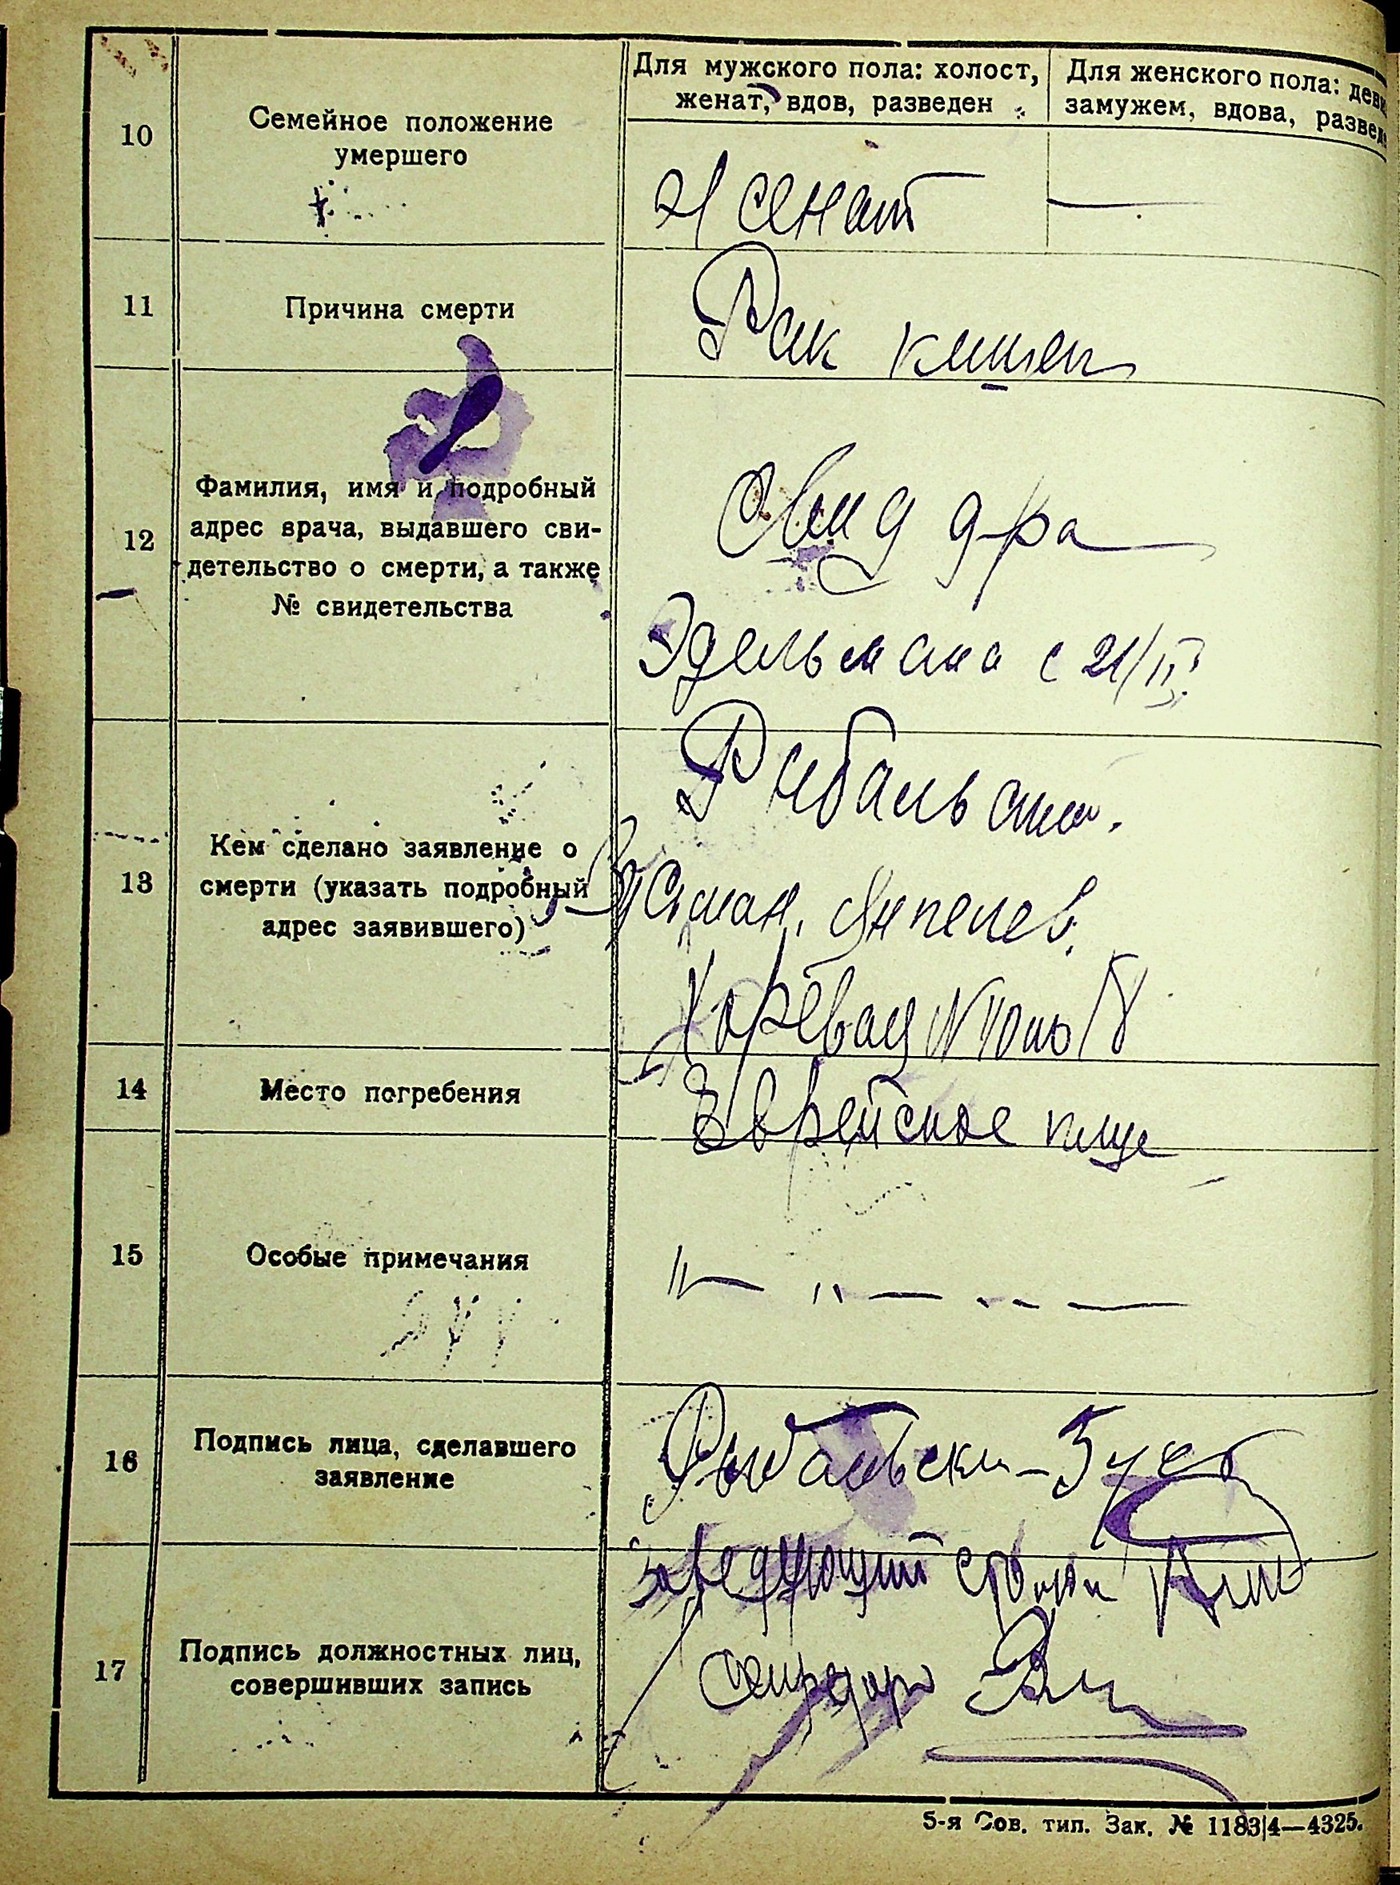 10
Семейное положение
умершего
Для мужского пола: холост,
женат, вдов, разведен
Для женского пола: деви
замужем, вдова, развед
Женат
—
11
Причина смерти
Рак кишеч
12
Фамилия, имя и подробный
адрес врача, выдавшего сви-
детельство о смерти, а также
№ свидетельства
Свид д-ра
Эдельмана с 21/II
13
Кем сделано заявление о
смерти (указать подробный
адрес заявившего)
Рибальски.
Хоревая
14
Место погребения
Еврейское клще
15
Особые примечания
" — " — " —
16
Подпись лица, сделавшего
заявление
Рыбальски-Зусь
17
Подпись должностных лиц,
совершивших запись
Заведующий столом
Секретарь
5-я Сов. тип. Зак. № 1183/4—4325.